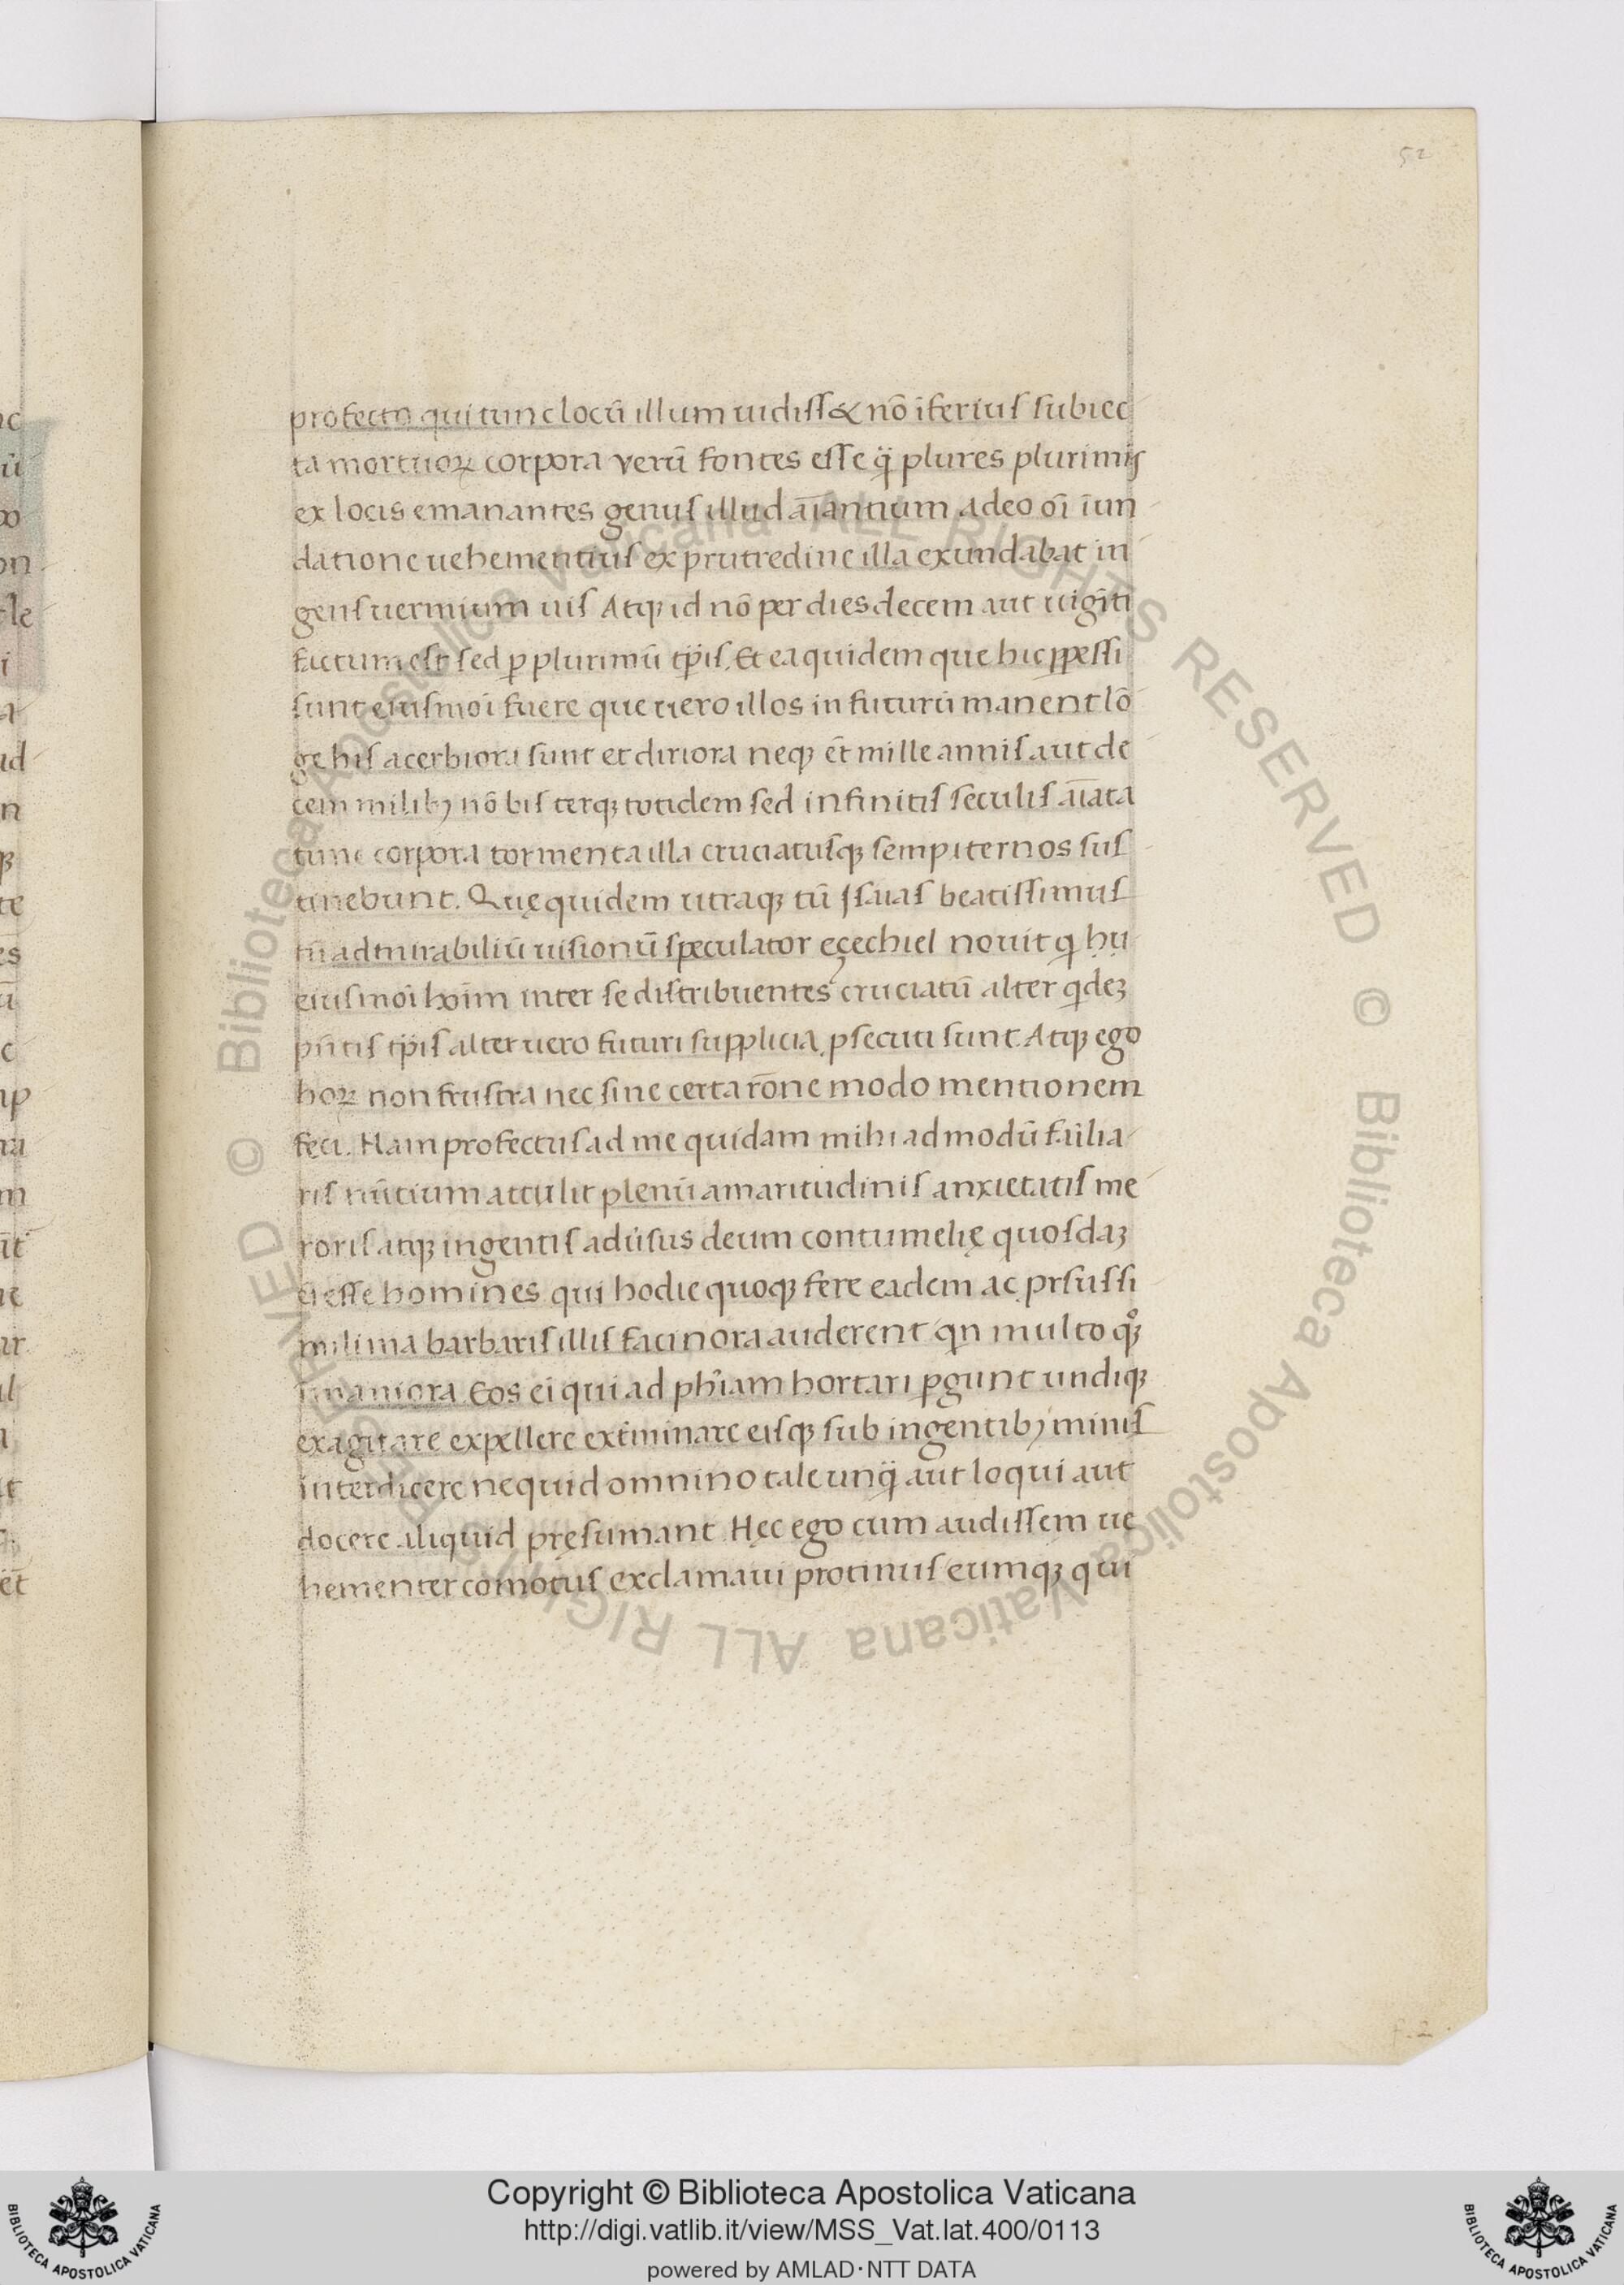 52
profecto qui tunc locū illum uidiss& nō īferius subiec
ta mortuoꝝ corpora verū fontes esse q̄ plures plurimis
ex locis emanantes genus illud āiantium adeo oī īun
datione uehementius ex prutredine illa exundabat in
gens uermium uis Atqꝫ id nō per dies decem aut uigīti
factum est sed ꝑ plurimū tp̄is. Et ea quidem que hic ꝑpessi
sunt eiusmōi fuere que uero illos in futurū manent lō
ge his acerbiora sunt et diriora neqꝫ ēt mille annis aut de
cem milibꝫ nō bis terqꝫ totidem sed infinitis seculis āiata
tunc corpora tormenta illa cruciatusqꝫ sempiternos sus
tinebunt. Quę quidem utraqꝫ tū Isaias beatissimus
tū admirabiliū uisionū speculator eçechiel nouit q hii
eiusmōi hoīm inter se distribuentes cruciatū alter qdeꝫ
pn̄tis tp̄is alter uero futuri supplicia ꝓsecuti sunt Atqꝫ ego
hoꝝ non frustra nec sine certa rōne modo mentionem
feci. Nam profectus ad me quidam mihi admodū fāilia
ris nūtium attulit plenū amaritudinis anxietatis me
roris atqꝫ ingentis adūsus deum contumelię quosdaꝫ
ei esse homines qui hodie quoqꝫ fere eadem ac prsussi
milima barbaris illis facinora auderent qn multo qꝫ
imaniora. Eos ei qui ad phīam hortari ꝑgunt undiqꝫ
exagitare expellere ext̄minare eisqꝫ sub ingentibꝫ minis
interdicere nequid omnino tale unq̄ aut loqui aut
docere aliquid pręsumant. Hęc ego cum audissem ue
hementer comotus exclamaui protinus eumqꝫ qui
f. 2
Copyright © Biblioteca Apostolica Vaticana
http://digi.vatlib.it/view/MSS_Vat.lat.400/0113
powered by AMLAD·NTT DATA
BIBLIOTECA APOSTOLICA VATICANA
BIBLIOTECA APOSTOLICA VATICANA